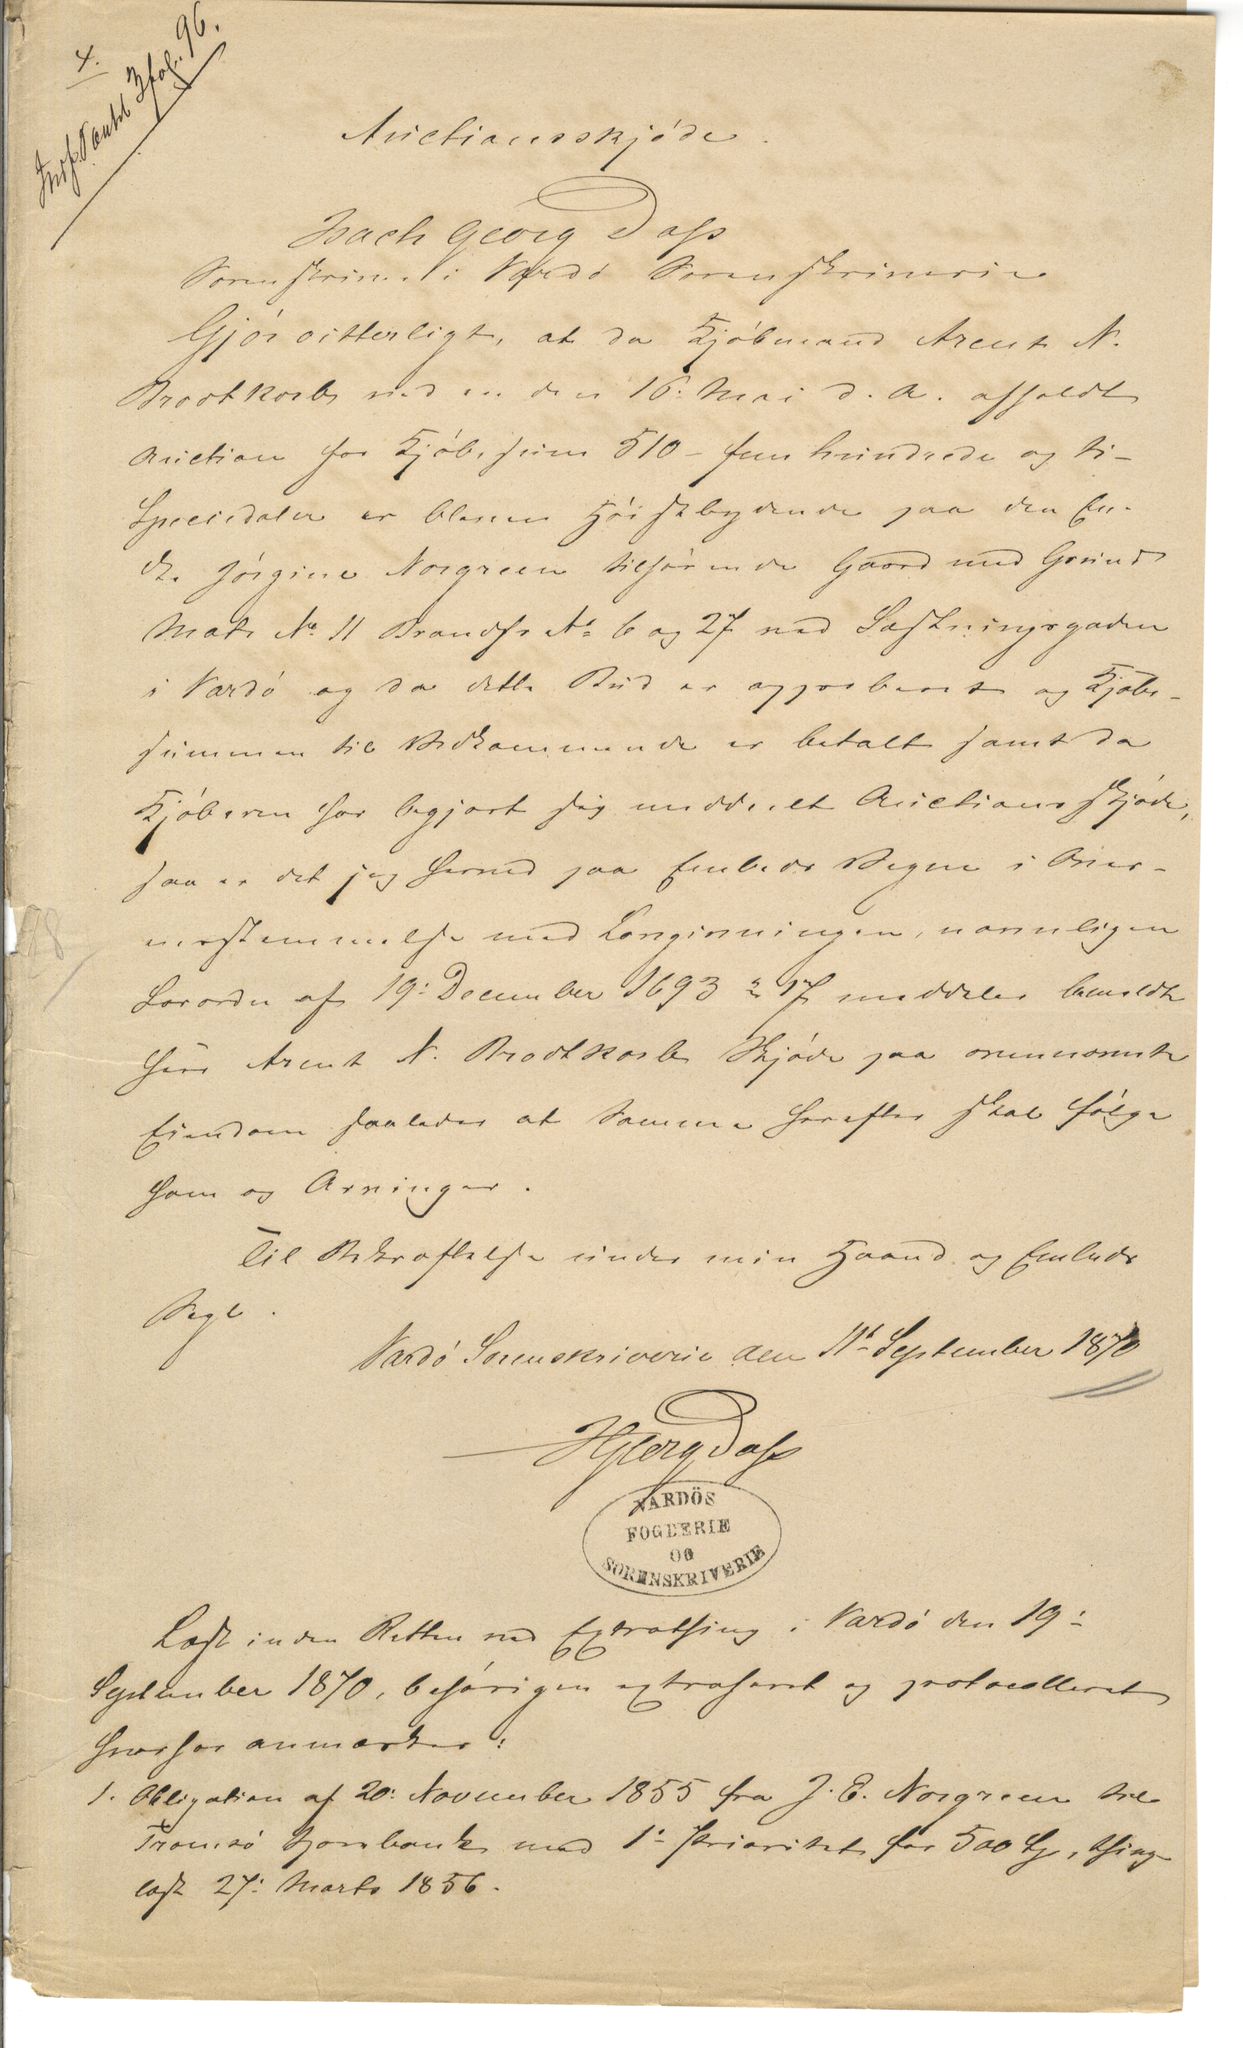 4.
Indf. Panteb. 3 fol. 96.
Auctionsskjøde.
Isach Georg Dass
Sorenskriver i Vardø Sorenskriverie
Gjør vitterligt, at da Kjøbmand Arent N.
Brodtkorb ved en den 16: Mai d. A. afholdt
Auction for Kjøbesum 510 - fem hundrede og ti -
Speciedaler er bleven Høistbydende paa den En-
ke Jørgine Norgreen tilhørende Gaard med Grund
Matr No 11 Brandfr No 6 og 27 ved Læstningsgaden
i Vardø og da dette Bud er approberet og Kjøbe-
summen til Vedkommende er betalt samt da
Kjøberen har begjært sig meddeelt Auctionsskjøde,
saa er det jeg herved paa Embeds Vegne i Over-
eensstemmelse med Lovgivningen, navnligen
Lovordn af 19: December 1693 § 17 meddeler bemeldte
Herr Arent N. Brodtkorb Skjøde paa ovennævnte
Eiendom saaledes at samme herefter skal følge
ham og Arvinger.
Til Bekræftelse under min Haand og Embeds
Segl.
Vardø Sorenskriverie den 11te September 1870
IGeorg Dass
VARDÖS
FOGDERIE
OG
SORENSKRIVERIE
Læst inden Retten ved Extrathing i Vardø den 19:
September 1870, behørigen extraheret og protocolleret
hvorfor anmærkes:
1. Obligation af 20: November 1855 fra J. E. Norgreen til
Tromsø Sparebank med 1: Prioritet for 500 Sp, thing-
læst 27: Marts 1856.